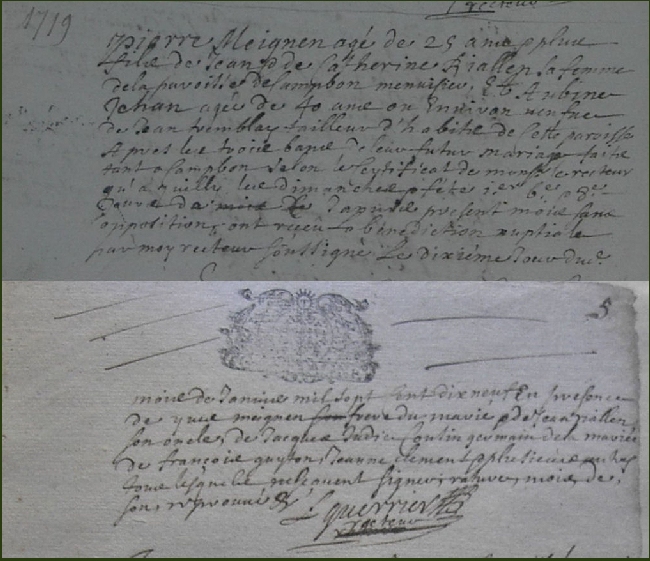 1719
recteur
pierre Meignen agé de 25 ans ou plus
fils de Jean & de Catherine Riallen sa femme
de la paroisse de Campbon menuisier, Et Aubine
Jehan agée de 40 ans ou Environ veufue
de Jean tremblay tailleur d'habits de cette paroisse
Apres les trois bans de leur futur mariage faits
tant a Campbon selon le certificat de monsr le recteur
qu'a les dimanches & fetes 1er 6e & 8e
Jours de Janvier present mois sans
opposition, ont reçeu la bénédiction nuptiale
par moy recteur soussigné Le dixiéme Jour du
5
mois de Janvier mil sept Cent dix neuf En presence
de yves meignen frere du marié & de Jean Riallen
son oncle, de Jacques cousin germain de la mariée
de françois guyton, Jeanne clement & plusieurs autres
tous lesquels ne signer, rature, mois, de,
son, reprouvé &
L guerrier
recteur